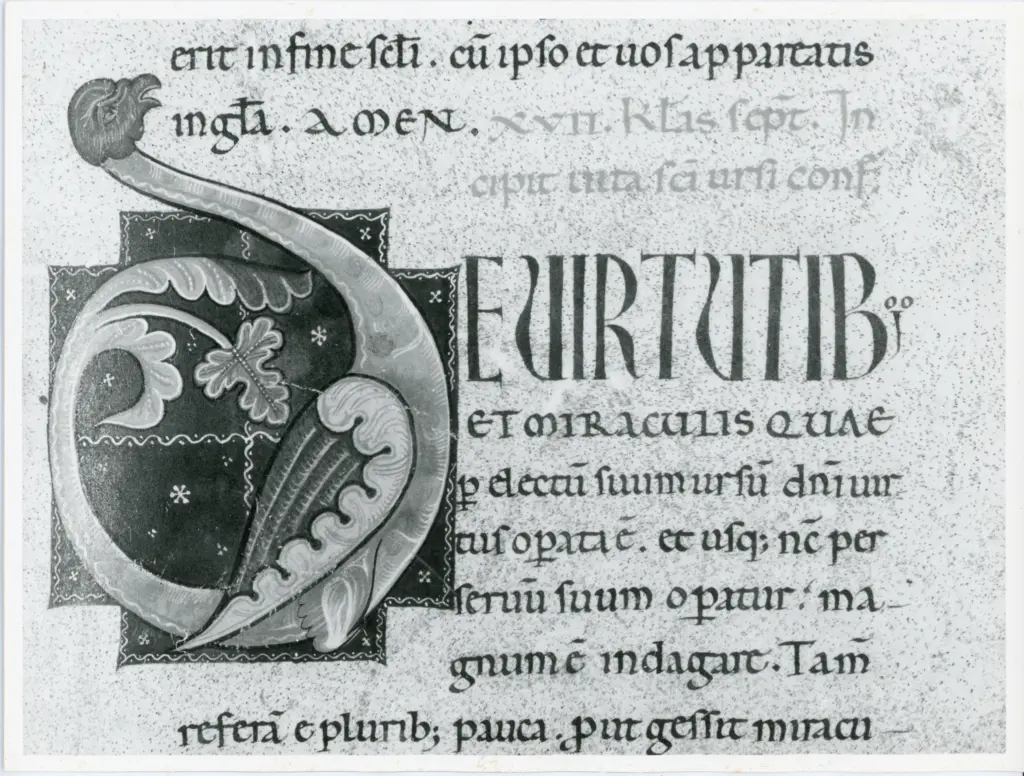 erit in fine scłi. cū ipso et uos appareatis
in głā. AMEN. XVII. Kłas sept̄. In
cipit uita sc̄i ursi conf̄.
DE UIRTUTIB;
ET MIRACULIS QUAE
ꝑ electū suum ursū dn̄i uir
tus oꝑata ē. et usq; nc̄ per
seruū suum oꝑatur. ma-
gnum ē indagare. Tam̄
referā e plurib; pauca. ꝓut gessit miracu-